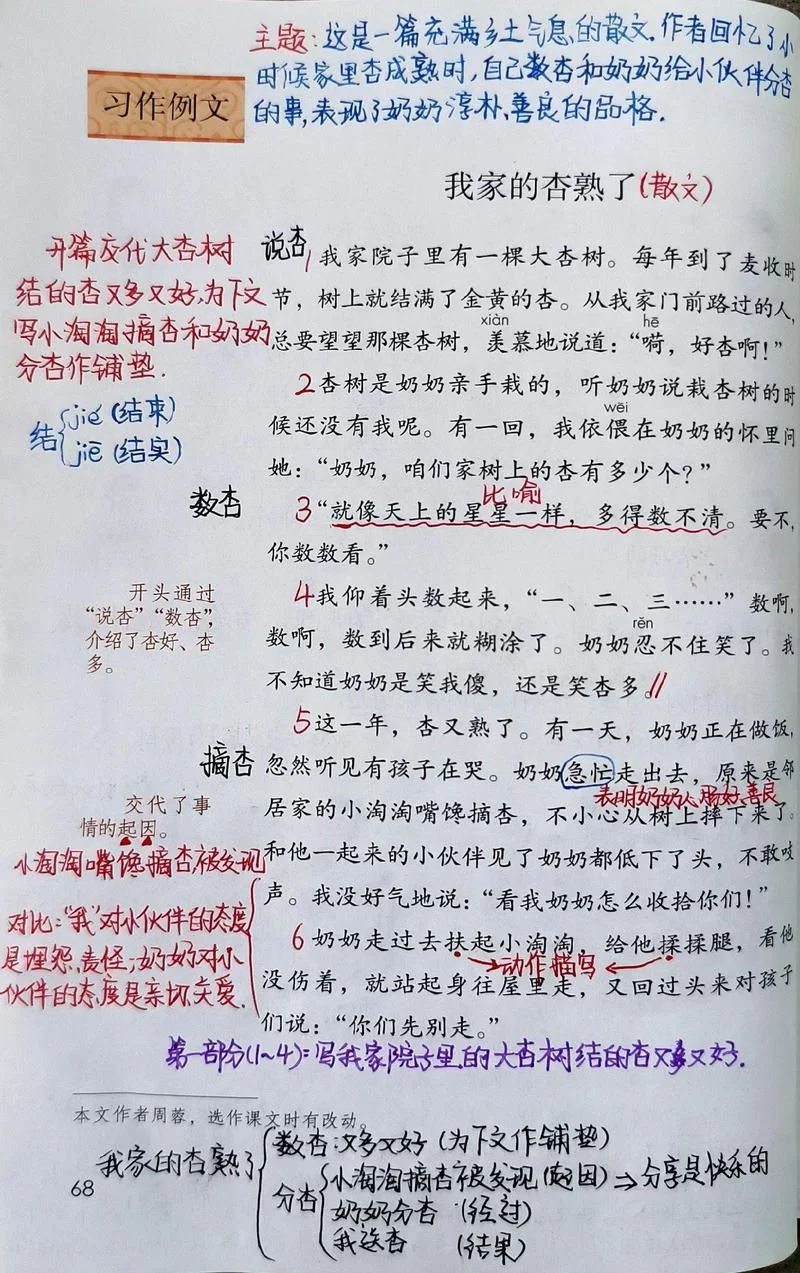 主题：这是一篇充满乡土气息的散文.作者回忆了小
时候家里杏成熟时,自己数杏和奶奶给小伙伴分杏
的事,表现了奶奶淳朴、善良的品格.
习作例文
我家的杏熟了(散文)
开篇交代大杏树
结的杏又多又好.为下文
写小淘淘摘杏和奶奶
分杏作铺垫.
结
jié (结束)
jiē (结实)
说杏
1 我家院子里有一棵大杏树。每年到了麦收时
节，树上就结满了金黄的杏。从我家门前路过的人，
xiàn hē
总要望望那棵杏树，羡慕地说道：“嗬，好杏啊！”
2 杏树是奶奶亲手栽的，听奶奶说栽杏树的时
wēi
候还没有我呢。有一回，我依偎在奶奶的怀里问
她：“奶奶，咱们家树上的杏有多少个？”
数杏
比喻
3 “就像天上的星星一样，多得数不清。要不，
你数数看。”
开头通过
“说杏”“数杏”，
介绍了杏好、杏
多。
4 我仰着头数起来，“一、二、三……”数啊，
rěn
数啊，数到后来就糊涂了。奶奶忍不住笑了。我
不知道奶奶是笑我傻，还是笑杏多。//
5 这一年，杏又熟了。有一天，奶奶正在做饭，
摘杏
忽然听见有孩子在哭。奶奶急忙走出去，原来是邻
表明奶奶心肠好、善良
居家的小淘淘嘴馋摘杏，不小心从树上摔下来了。
交代了事
情的起因。
小淘淘嘴馋摘杏,被发现
和他一起来的小伙伴见了奶奶都低下了头，不敢吱
声。我没好气地说：“看我奶奶怎么收拾你们！”
对比："我"对小伙伴的态度
是埋怨、责怪;奶奶对小
伙伴的态度是亲切、关爱.
6 奶奶走过去扶起小淘淘，给他揉揉腿，看他
动作描写
没伤着，就站起身往屋里走，又回过头来对孩子
们说：“你们先别走。”
第一部分(1~4)：写我家院子里的大杏树结的杏又多又好.
本文作者周蓉，选作课文时有改动。
我家的杏熟了
数杏:又多又好 (为下文作铺垫)
分杏
小淘淘摘杏被发现(起因)
奶奶分杏 (经过)
我送杏 (结果)
⇒分享是快乐的
68